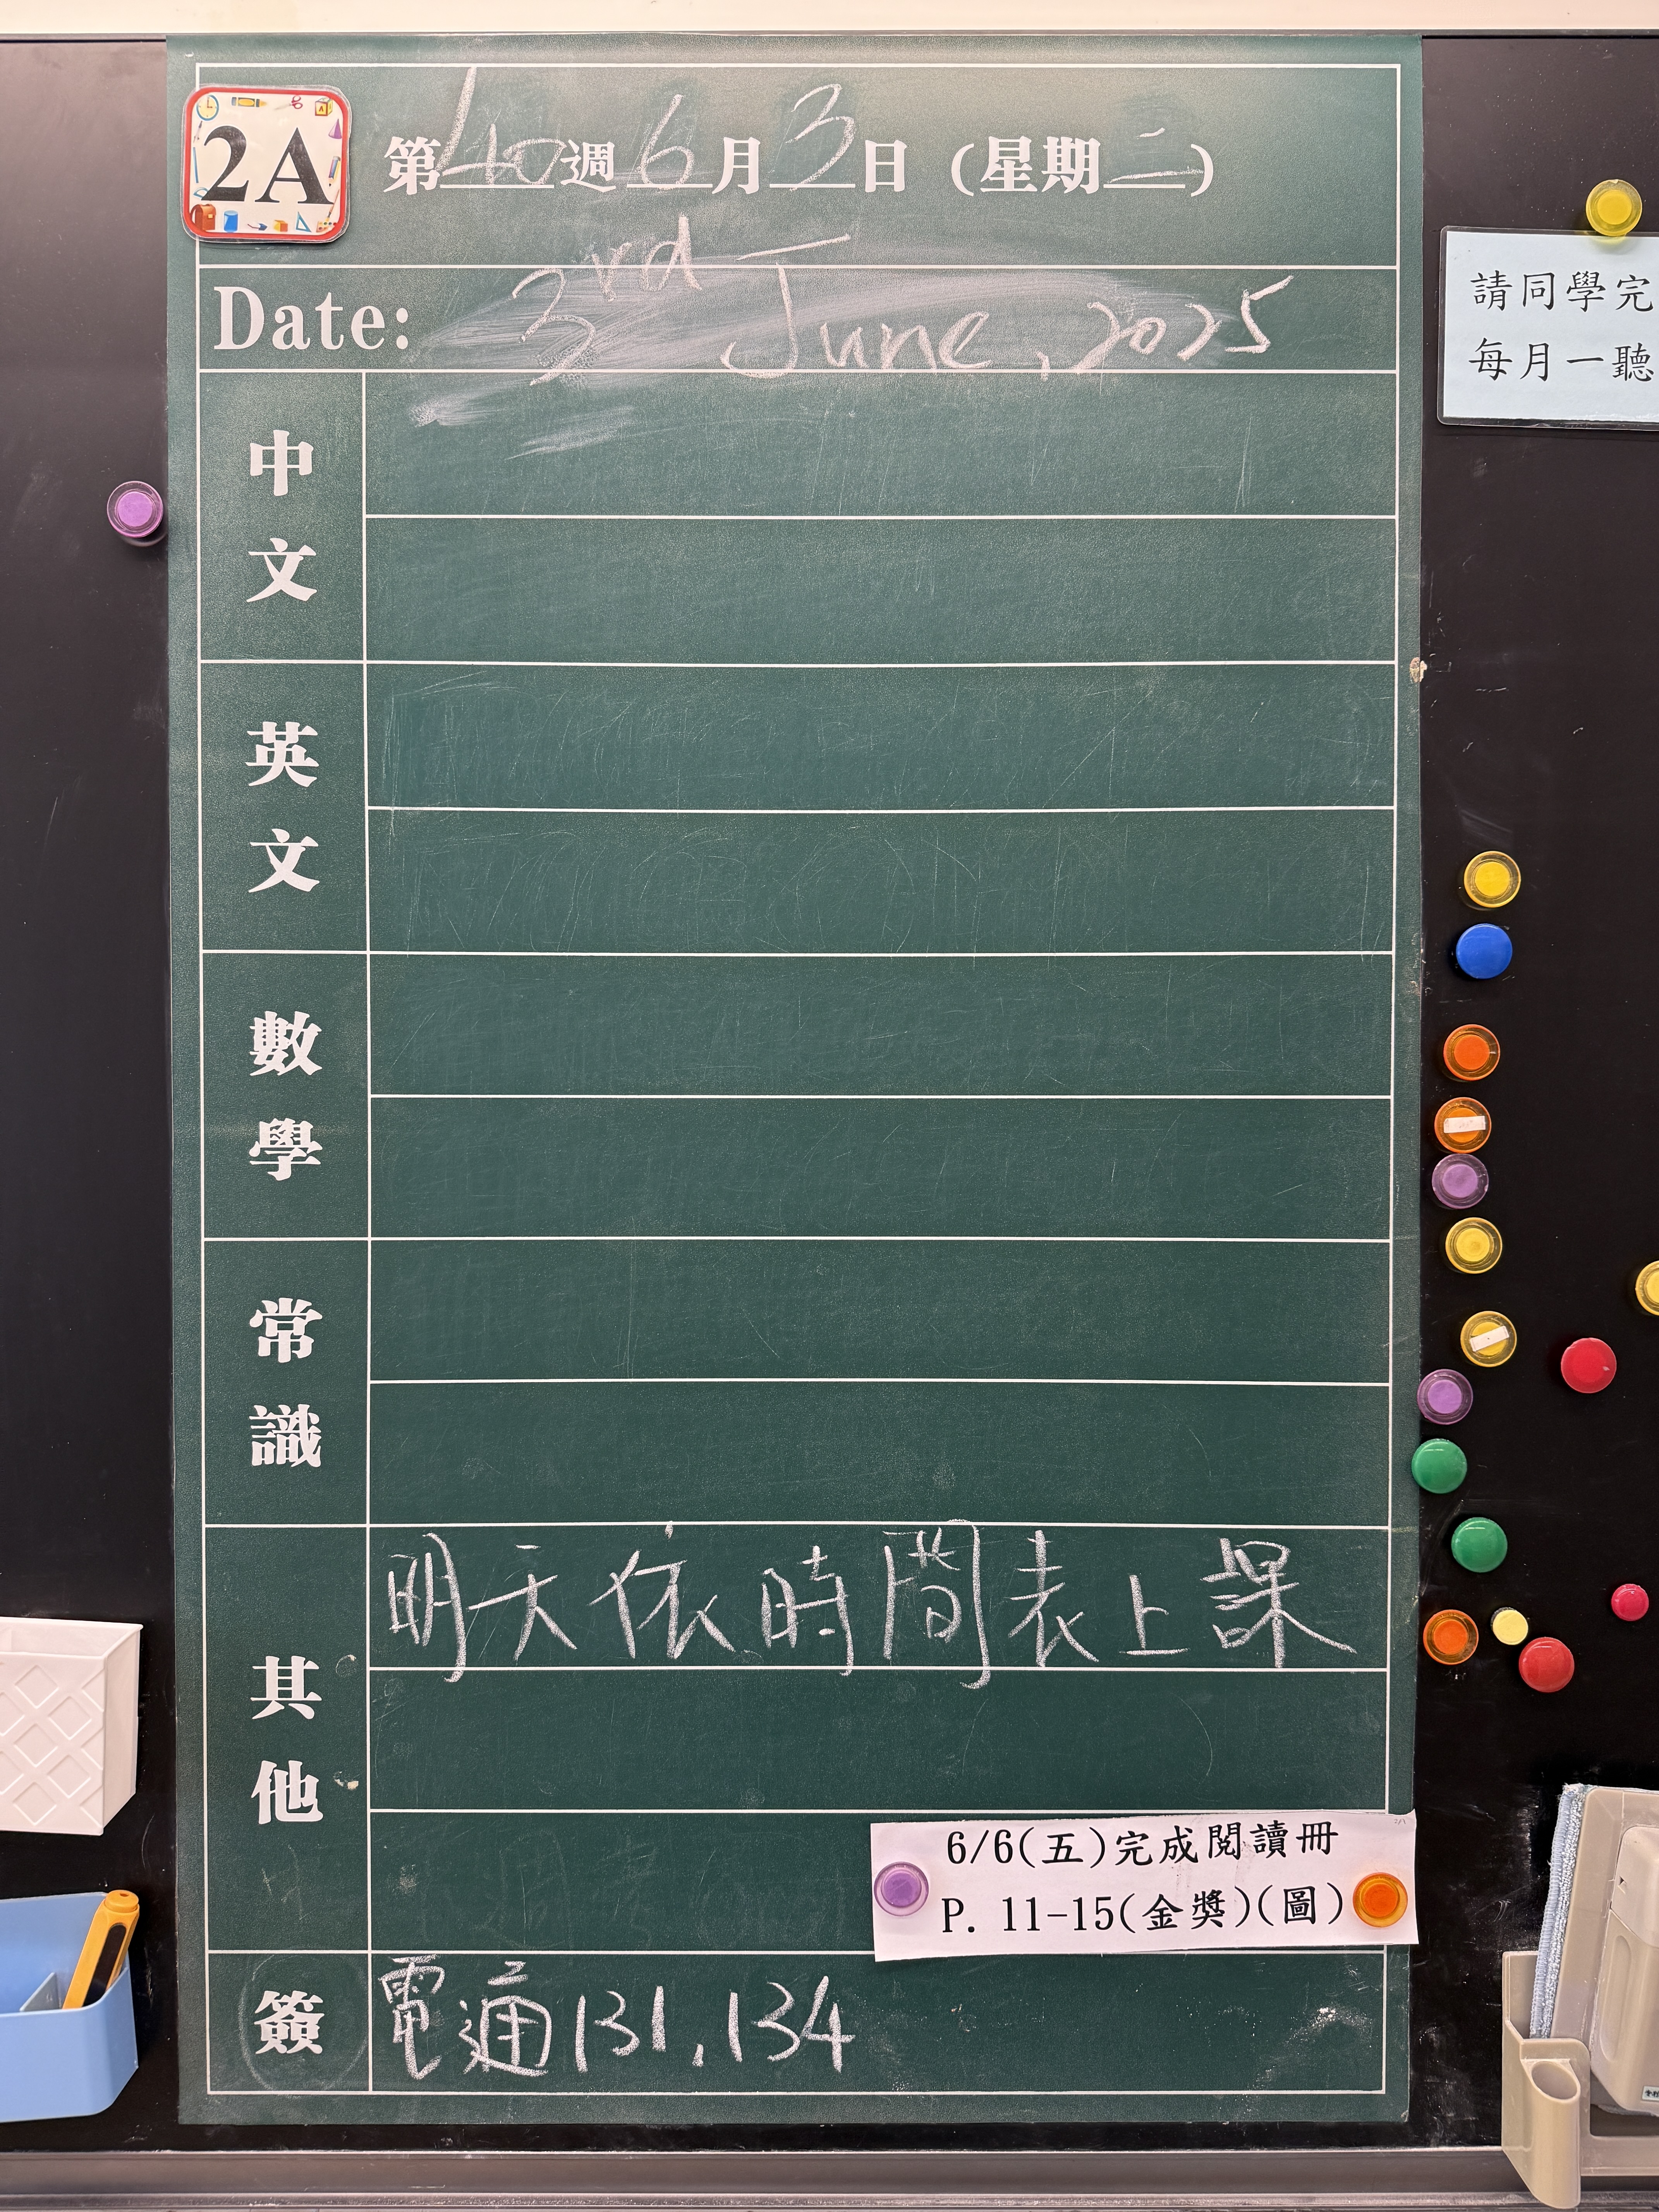 2A
第40週6月3日(星期二)
Date: 3rd June, 2025
中文
英文
數學
常識
其他
明天依時間表上課
6/6(五)完成閱讀冊
P. 11-15(金獎)(圖)
簽
電通131,134
請同學完
每月一聽